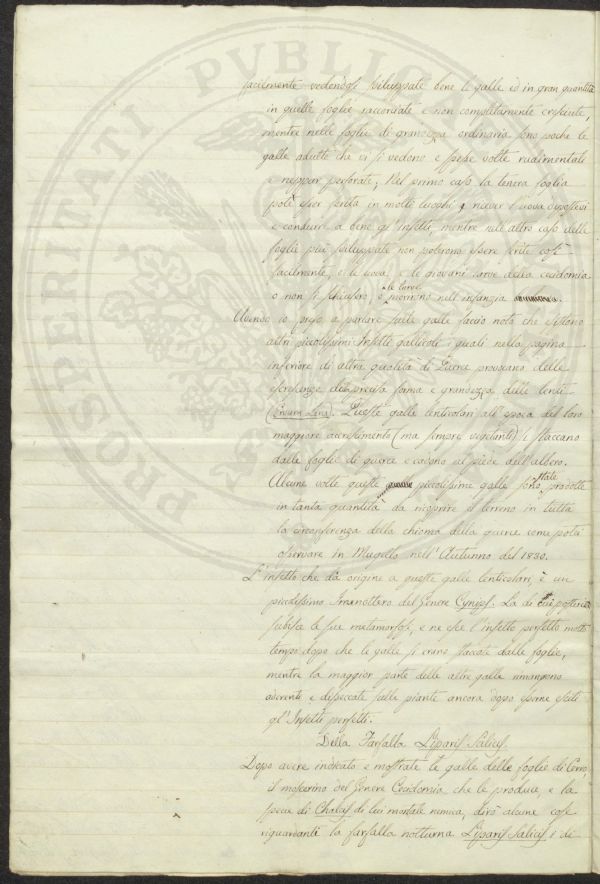 facilmente vedendosi sviluppate bene le galle ed in gran quantità
in quelle foglie raccorciate e non completamente cresciute,
mentre nelle foglie di grandezza ordinaria sono poche le
galle adulte che vi si vedono e spesse volte rudimentali
e neppur perforate; Nel primo caso la tenera foglia
potè esser ferita in molti luoghi e ricever l'uova depostevi
e condurle a bene gl'insetti, mentre nell'altro caso delle
foglie più sviluppate non poterono essere ferite così
facilmente, e le uova, e le giovani larve della cecidomia
o non si schiusero, o le larve morirono nell'infanzia.
Avendo io preso a parlare sulle galle faccio noto che esistono
altri piccolissimi Insetti gallicoli i quali nella pagina
inferiore di altra qualità di Querce provocano delle
escrescenze di precisa forma e grandezza delle lenti
(Ervum Lens). Queste galle lenticolari all'epoca del loro
maggiore accrescimento (ma sempre vegetanti) si staccano
dalle foglie di querce e cadono al piede dell'albero.
Alcune volte queste piccolissime galle sono state prodotte
in tanta quantità da ricoprire il terreno in tutta
la circonferenza della chioma della querce come potei
osservare in Mugello nell'Autunno del 1830.
L'insetto che dà origine a queste galle lenticolari, è un
piccolissimo Imenottero del Genere Cynips. La di cui
subisce le sue metamorfosi, e ne esce l'insetto perfetto molto
tempo dopo che le galle si erano staccate dalle foglie,
mentre la maggior parte delle altre galle rimangono
aderenti e disseccate sulle piante ancora dopo esserne esciti
gl'Insetti perfetti.
Della Farfalla Liparis Salicis
Dopo avere indicato e mostrate le galle delle foglie di Cerro,
il moscerino del Genere Cecidomia che le produce, e la
specie di Chalcis di lui mortale nemica, dirò alcune cose
riguardanti la farfalla notturna Liparis Salicis, di
PROSPERITATI PVBLIC